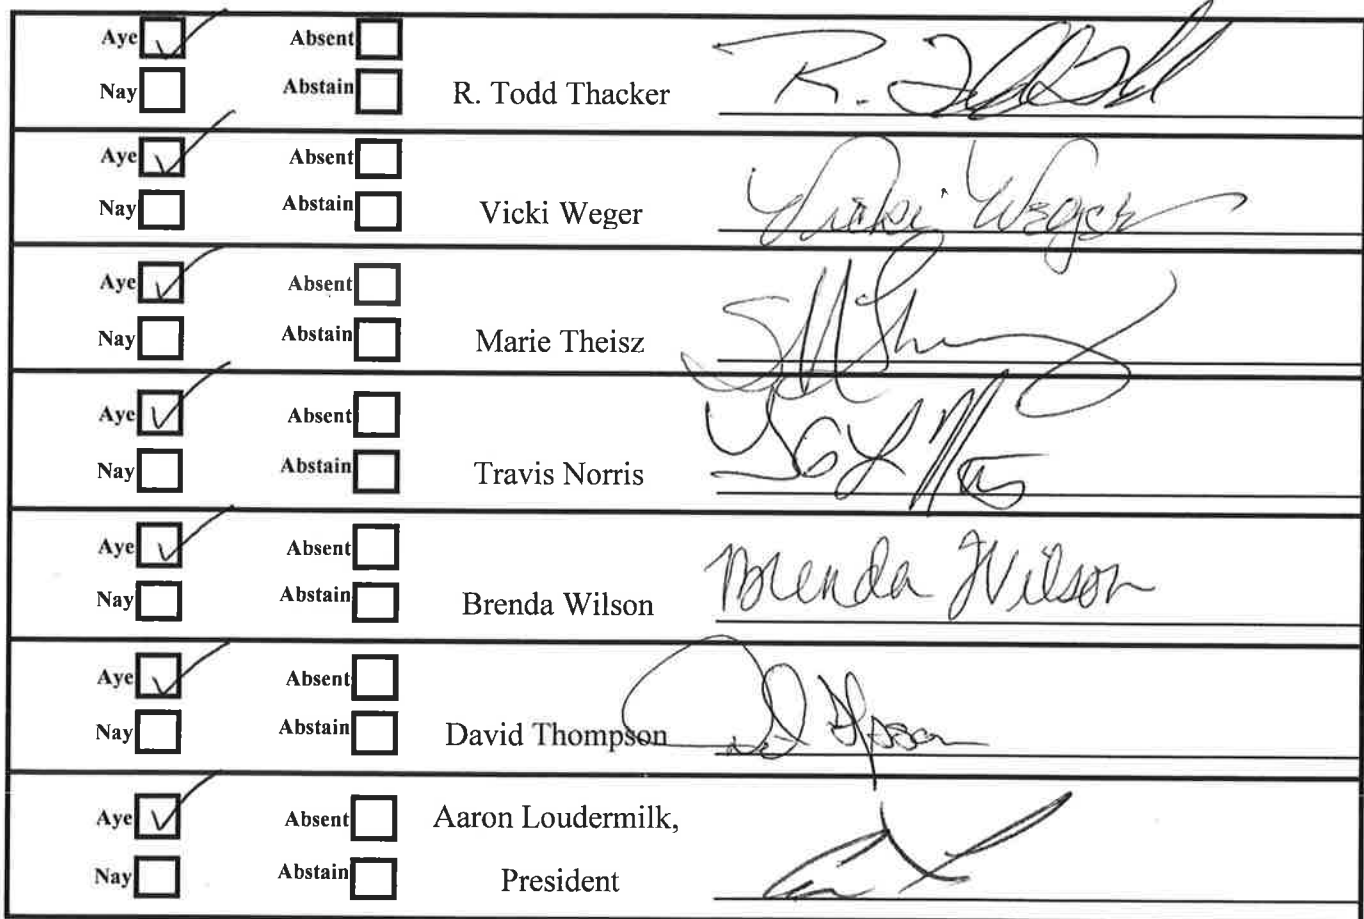 Aye Absent
Nay Abstain R. Todd Thacker R. Todd
Aye Absent
Nay Abstain Vicki Weger Vicki Weger
Aye Absent
Nay Abstain Marie Theisz
Aye Absent
Nay Abstain Travis Norris
Aye Absent
Nay Abstain Brenda Wilson Brenda Wilson
Aye Absent
Nay Abstain David Thompson
Aye Absent Aaron Loudermilk,
Nay Abstain President